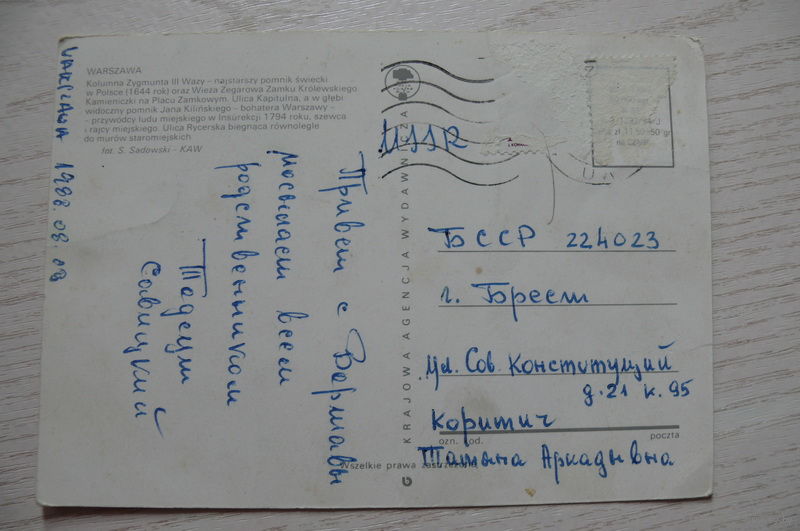 WARSZAWA
Kolumna Zygmunta III Wazy – najstarszy pomnik świecki
w Polsce (1644 rok) oraz Wieża Zegarowa Zamku Królewskiego
Kamieniczki na Placu Zamkowym. Ulica Kapitulna, a w głębi
widoczny pomnik Jana Kilińskiego – bohatera Warszawy –
– przywódcy ludu miejskiego w Insurekcji 1794 roku, szewca
i rajcy miejskiego. Ulica Rycerska biegnąca równolegle
do murów staromiejskich
fot. S. Sadowski - KAW
WARSZAWA 1988.08.08
Привет с Варшавы
посылает всем
родственникам
Тадеуш
Савицкий
KRAJOWA AGENCJA WYDAWNICZA
БССР 224023
г. Брест
ул. Сов. Конституций
д. 21 к. 95
Коритич
ozn. kod. poczta
Татьяна Аркадьвна
Wszelkie prawa zastrzeżone
G